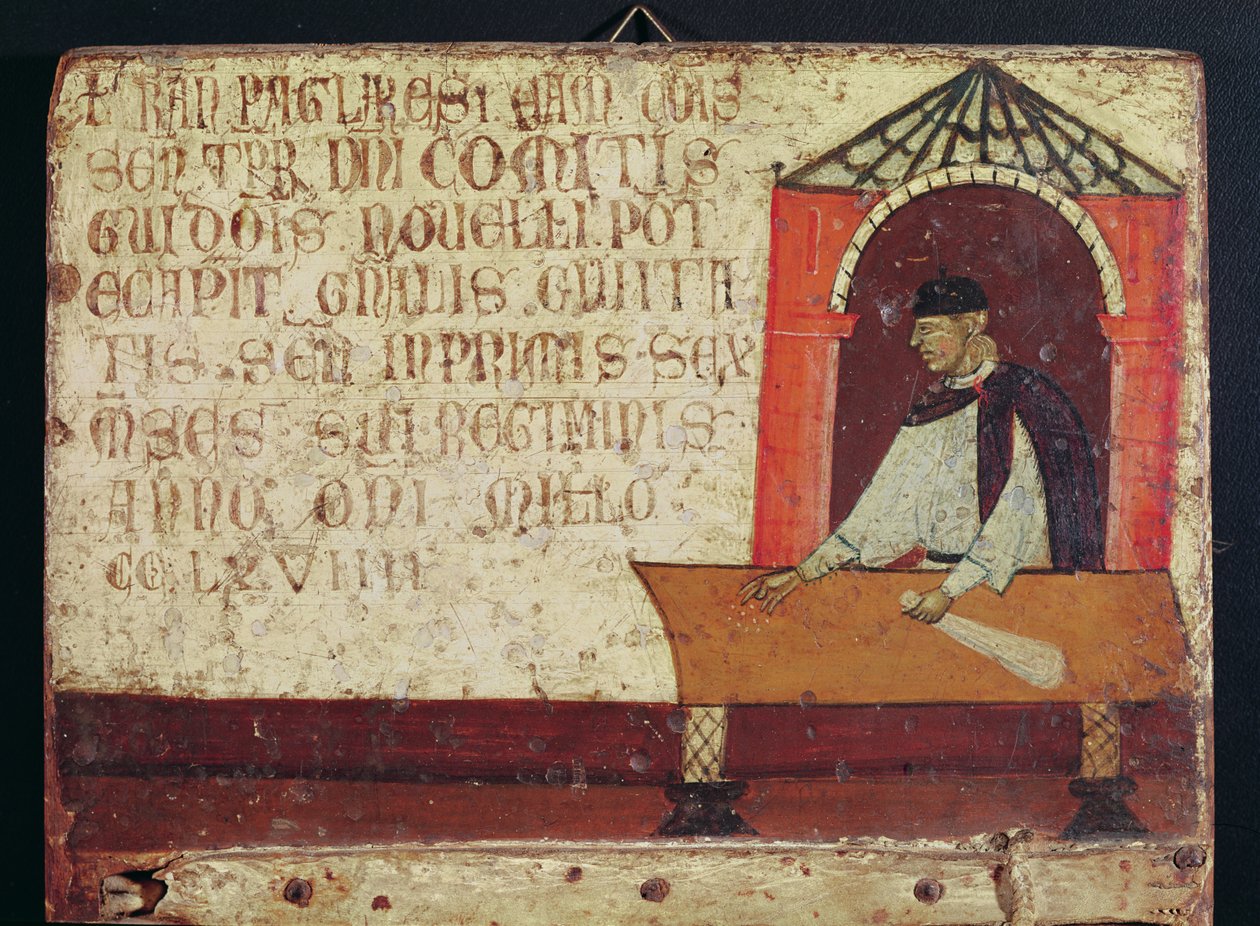 + RAN PAGLARESI. CAM. COIS
SEN TPR DNI COMITIS
GUIDOIS. NOVELLI. POT
ECAPIT. GÑALIS. CIVITA
TIS. SEN. INPRIMIS. SEX
M̄SES. SUI. REGIMINIS.
ANNO. DNI. MILLO.
CC. LXVIIII